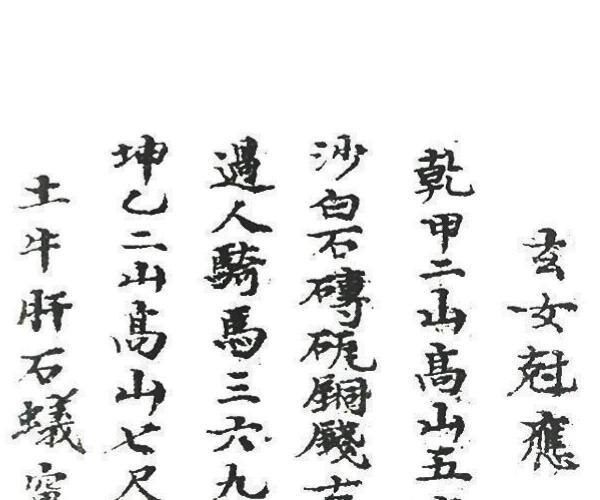 玄女尅應
乾甲二山高山五
沙白石磚砖銅錢
過人騎馬三六九
坤乙二山高山七尺
土牛肝石蟻